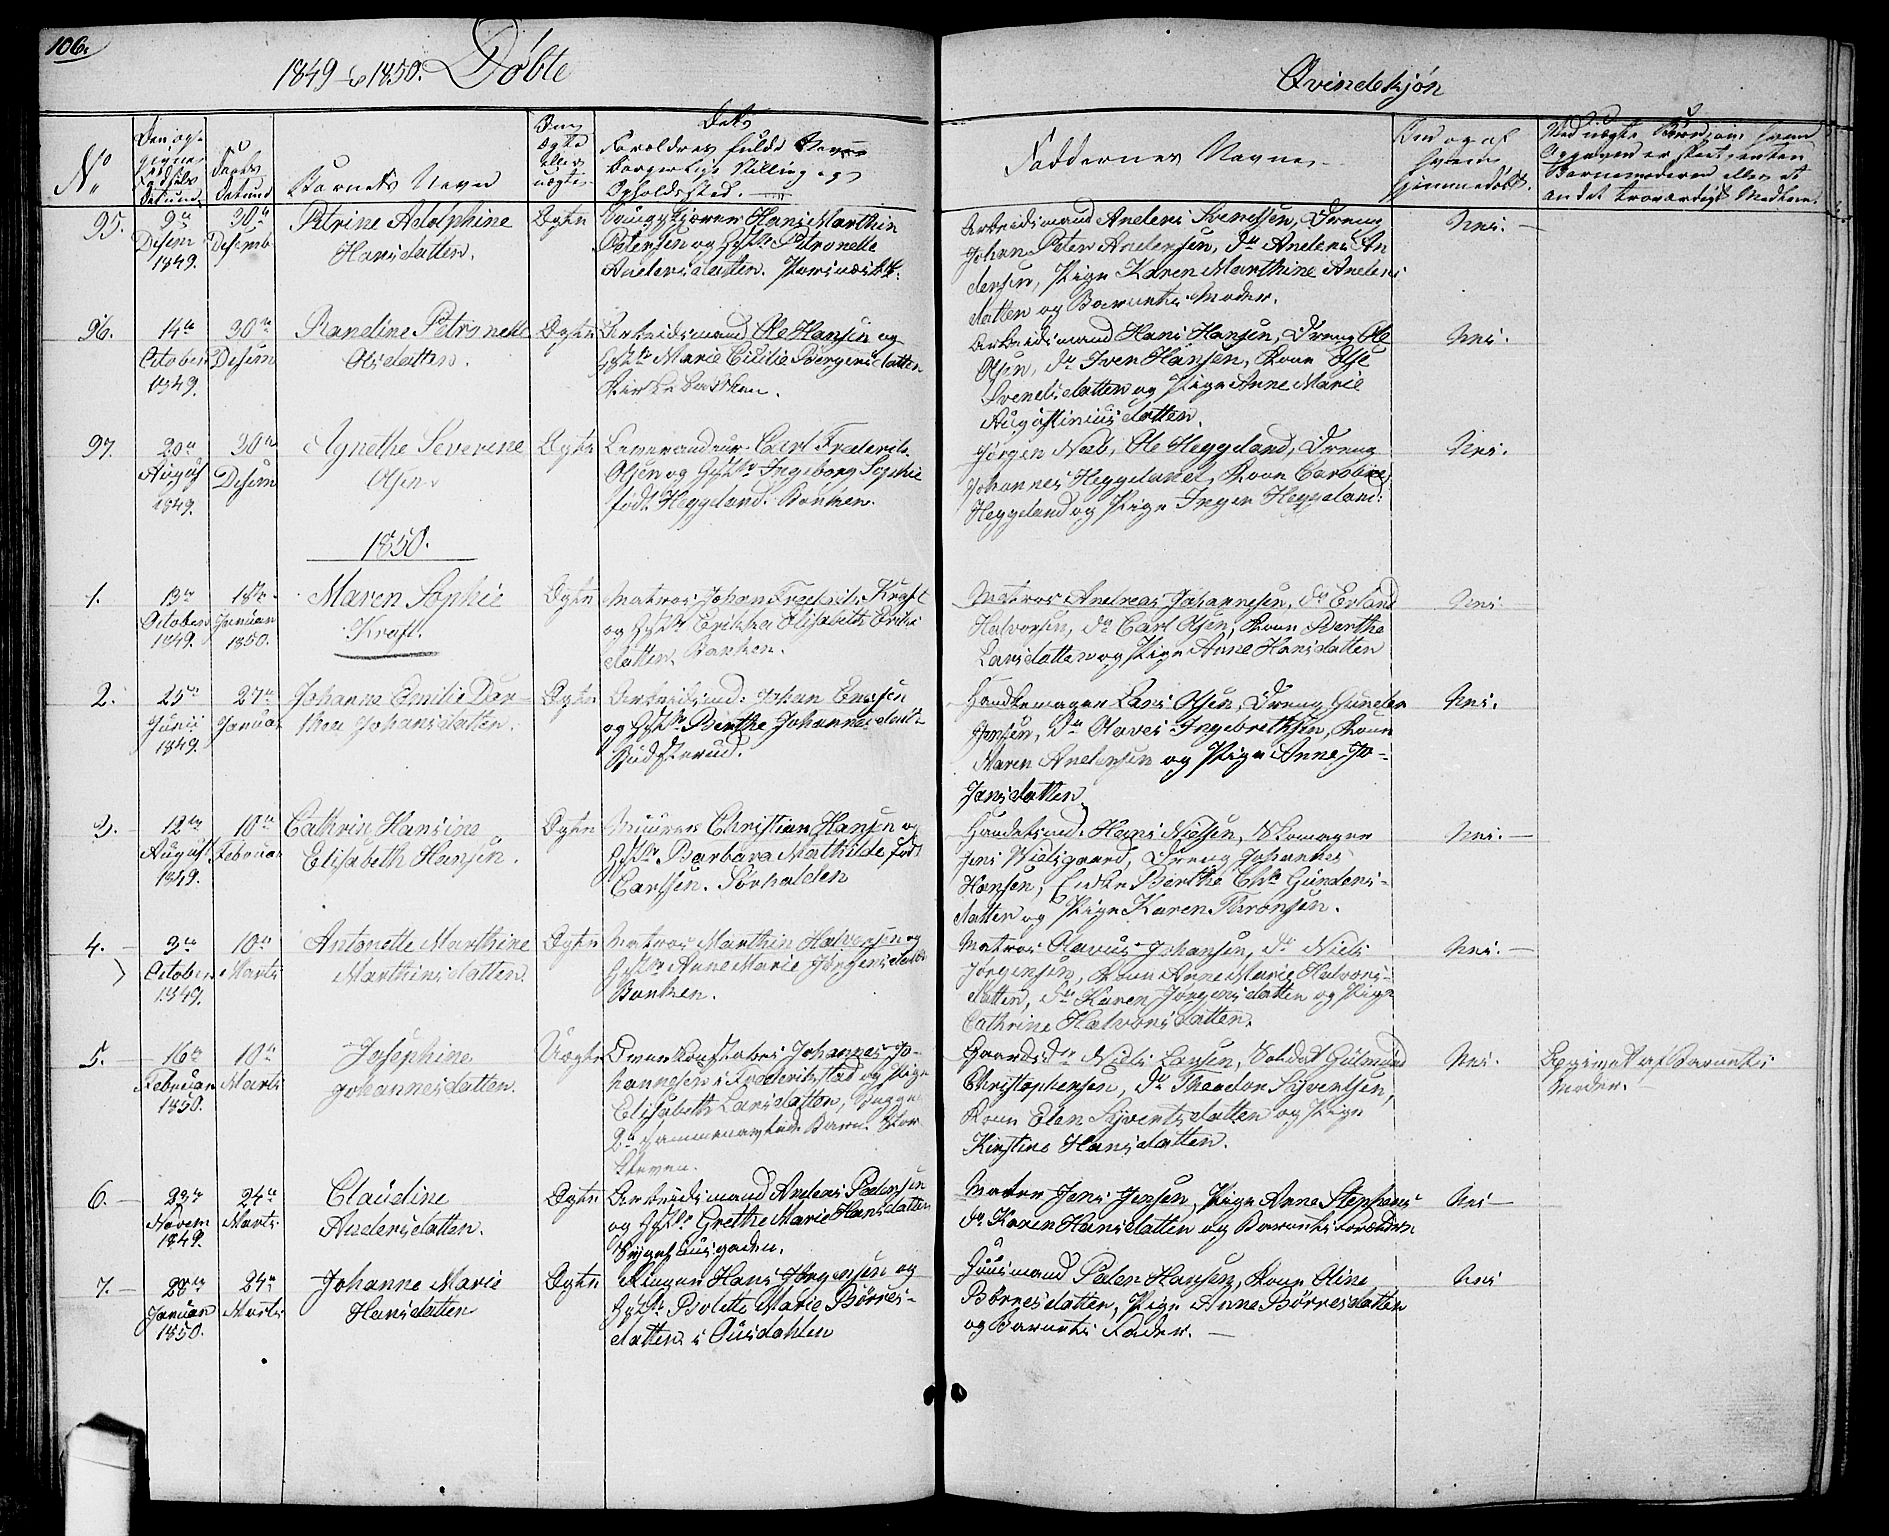 106.
1849 & 1850. Døbte
Qvindekjøn
No
Daabs Datum
Barnets Navn
Ægte eller uægte
Forældres fulde Navne
Borgerlige Stilling og
Opholdssted.
Faddernes Navne
Om og af
hvem
hjemmedøbt.
Barnemoderen eller et
andet troværdigt Medhem
95.
9de
Desem
1849.
30te
Desemb
Petrine Adolphine
Hansdatten.
Ægte
Hans Marthin
Petersen og Hstr Petronette
Andersdatten.
Arbeidsmand Anders Svensen, Dreng
Johan Peter Andersen, do Anders An
dersen, Pige Karen Marthine Anders
datten og Barnets Moder.
Nei.
96.
14de
October
1849.
30te
Desem
Randine Petronette
Olsdatten.
Ægte
Arbeidsmand Ole Hansen og
Hstr Marie Cicilie Børgersdatten
Arbeidsmand Hans Hansen, Dreng Ole
Olsen, do Iver Hansen, Kone Else
Svendsdatten og Pige Anne Marie
Augustinusdatten.
Nei.
97.
20de
August
1849.
30te
Desem
Agnethe Severine
Olsen
Ægte
Carl Frederik
Olsen og Hstr Ingeborg Sophie
født Heggeland. Banken.
Jørgen Næb, Ole Heggeland, Dreng
Johannes Heggeland, Kone Caroline
Heggeland og Pige Inger Heggeland.
Nei.
1850.
1.
13de
October
1849.
18de
Januar
1850.
Maren Sophie
Kraft.
Ægte
Matros Johan Fredrik Kraft
og Hstr Erikka Elisabeth Eriks
datten. Banken.
Matros Andreas Johannesen, do Erland
Halvorsen, do Carl Olsen, Kone Berthe
Larsdatten og Pige Anne Hansdatten
Nei
2.
25de
Juni
1849.
27de
Januar
Johanne Emilie Dor-
thea Johansdatten.
Ægte
Arbeidsmd. Johan Enersen
og Hstr Berthe Johannesdatt
Handkemager Lars Olsen, Dreng Gunder
Jensen, do Olaves Ingebrethsen, Kone
Maren Andersen og Pige Anne Jo-
hansdatten
Nei.
3.
12te
August
1849.
10de
Februar
Cathrin Hansine
Elisabeth Hansen.
Ægte
Muurer Christian Hansen og
Hstr Barbara Mathilde, født
Carlsen. Sørhalden
Handelsmd. Hans Nielsen, Skomager
Jens Nielsgaard, Dreng Johannes
Hansen, Enke Berthe Chr. Gunders-
datten og Pige Karen Thronsen.
Nei.
4.
3de
October
1849.
10de
Marts
Antonette Marthine
Marthinsdatten.
Ægte
Matros Marthin Halvorsen og
Hstr Anne Marie Jørgensdatten
Banken.
Matros Olavus Johansen, do Niels
Jørgensen, Kone Anne Marie Halvors-
datten, do Karen Jørgensdatten og Pige
Cathrine Halvorsdatten.
Nei.
5.
16de
Februar
1850.
10de
Marts
Josephine
Johannesdatten.
Uægte
Overkonstabel Johannes Jo-
hannesen i Frederikstad og Pige
Elisabeth Larsdatten, begges
2det sammenavlede Barn. Stor
Steven.
Gaardsdr Niels Larsen, Soldat Gulmund
Christophersen, do Theodor Syvertsen,
Kone Elen Syvertsdatten og Pige
Kirstine Hansdatten.
Nei.
Opgivet af Barnets
Moder.
6.
23de
Novem
1849.
24de
Marts
Claudine
Andersdatten.
Ægte
Arbeidsmand Anders Pedersen
og Hstr Grethe Marie Hansdatten
Jens Jensen, Pige Anne Stephens
do Karen Hansdatten og Barnets Forældre
Nei
7.
28de
Januar
1850.
24de
Marts
Johanne Marie
Hansdatten
Ægte
Ringer Hans Jørgensen og
Hstr Bolette Marie Børres-
datten i Ousdahlen
Huusmand Peder Hansen, Kone Oline
Børresdatten, Pige Anne Børresdatten
og Barnets Fader.
Nei